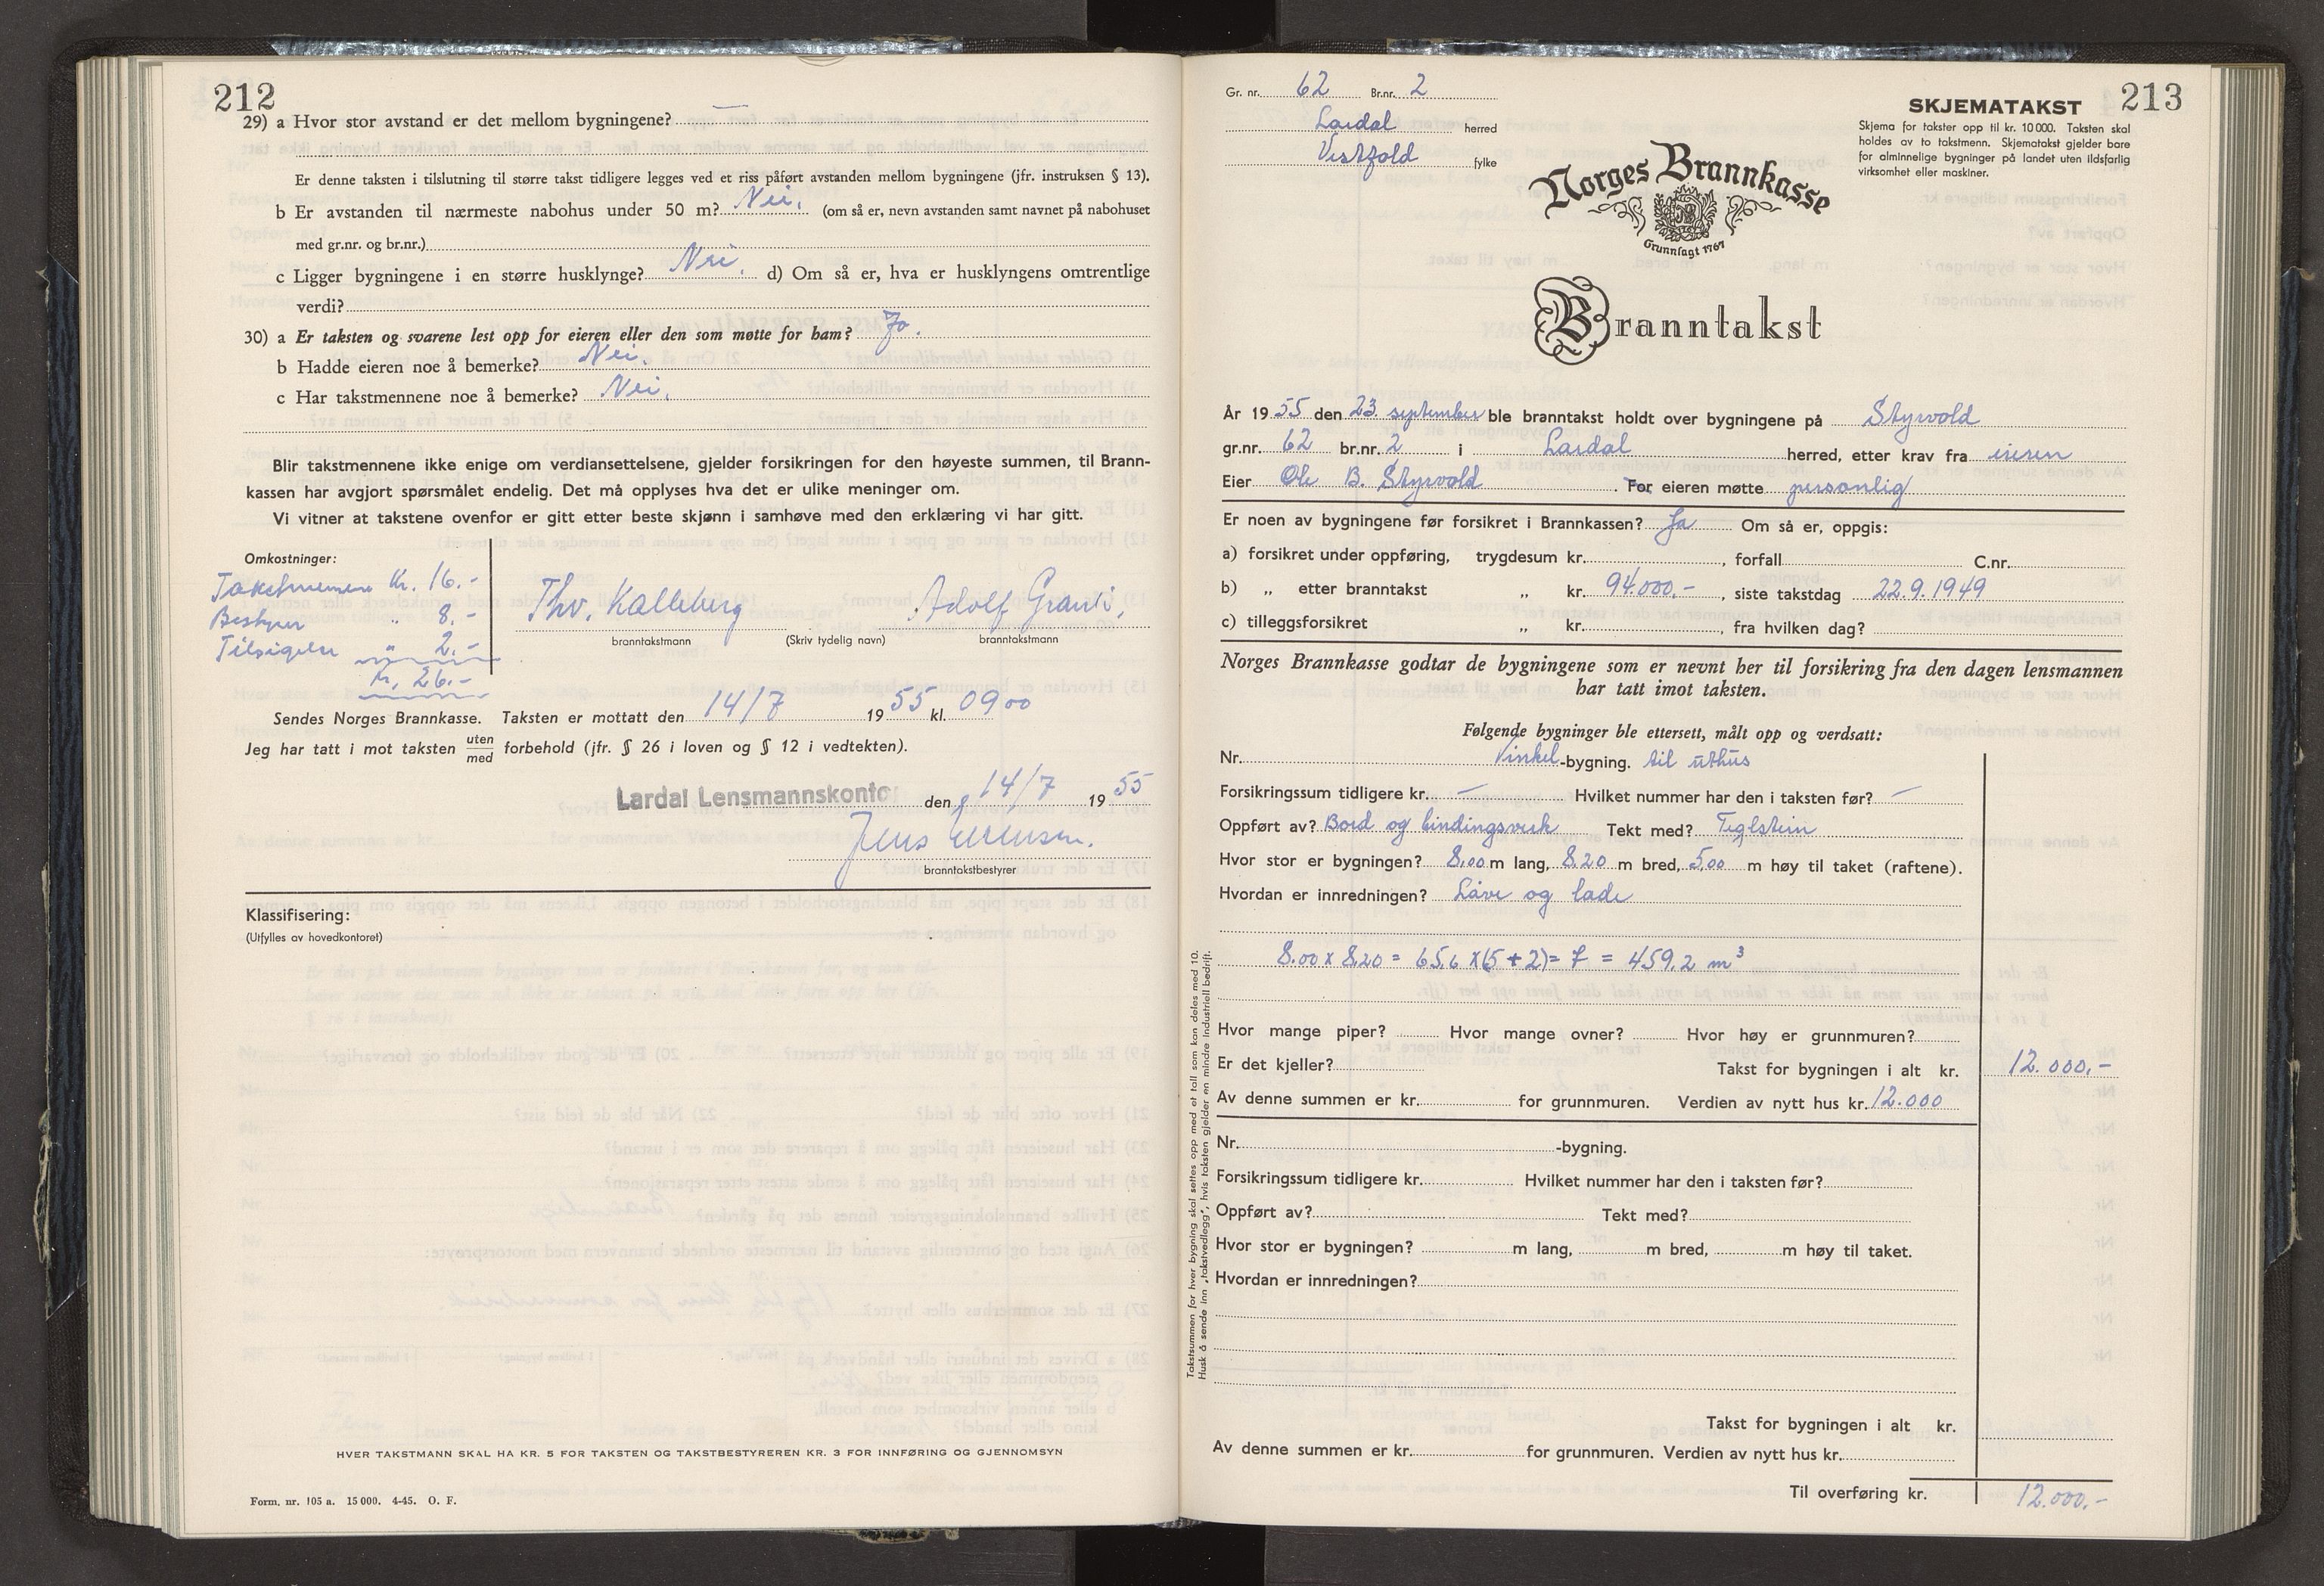 212
29) a Hvor stor avstand er det mellom bygningene? —
Er denne taksten i tilslutning til større takst tidligere legges ved et riss påført avstanden mellom bygningene (jfr. instruksen § 13).
b Er avstanden til nærmeste nabohus under 50 m? Nei. (om så er, nevn avstanden samt navnet på nabohuset
med gr.nr. og br.nr.)
c Ligger bygningene i en større husklynge? Nei. d) Om så er, hva er husklyngens omtrentlige
verdi?
30) a Er taksten og svarene lest opp for eieren eller den som møtte for ham? Ja.
b Hadde eieren noe å bemerke? Nei.
c Har takstmennene noe å bemerke? Nei.
Blir takstmennene ikke enige om verdiansettelsene, gjelder forsikringen for den høyeste summen, til Brann-
kassen har avgjort spørsmålet endelig. Det må opplyses hva det er ulike meninger om.
Vi vitner at takstene ovenfor er gitt etter beste skjønn i samhøve med den erklæring vi har gitt.
Omkostninger:
Takstmennene Kr. 16.-
Bestyrer " 8.-
Tilsigelse " 2.-
Kr. 26.-
Thv. Kalleberg Adolf Granli.
branntakstmann (Skriv tydelig navn) branntakstmann
Sendes Norges Brannkasse. Taksten er mottatt den 14/7 1955 kl. 0900
Jeg har tatt i mot taksten uten/med forbehold (jfr. § 26 i loven og § 12 i vedtekten).
Lardal Lensmannskontor den 14/7 1955
Jens
branntakstbestyrer
Klassifisering:
(Utfylles av hovedkontoret)
HVER TAKSTMANN SKAL HA KR. 5 FOR TAKSTEN OG TAKSTBESTYREREN KR. 3 FOR INNFØRING OG GJENNOMSYN
Form. nr. 105 a. 15 000. 4-45. O. F.
213
Gr. nr. 62 Br.nr. 2
Lardal herred
Vestfold fylke
SKJEMATAKST
Skjema for takster opp til kr. 10 000. Taksten skal
holdes av to takstmenn. Skjematakst gjelder bare
for alminnelige bygninger på landet uten ildsfarlig
virksomhet eller maskiner.
Norges Brannkasse
Grunnlagt 1767
Branntakst
År 1955 den 23. september ble branntakst holdt over bygningene på Styrvold
gr.nr. 62 br.nr. 2 i Lardal herred, etter krav fra eieren
Eier Ole B. Styrvold. For eieren møtte personlig
Er noen av bygningene før forsikret i Brannkassen? Ja Om så er, oppgis:
a) forsikret under oppføring, trygdesum kr. , forfall C.nr.
b) „ etter branntakst „ kr. 94.000.- , siste takstdag 22.9.1949
c) tilleggsforsikret „ kr. , fra hvilken dag?
Norges Brannkasse godtar de bygningene som er nevnt her til forsikring fra den dagen lensmannen
har tatt imot taksten.
Følgende bygninger ble ettersett, målt opp og verdsatt:
Nr. Vinkel-bygning. til uthus
Forsikringssum tidligere kr. — Hvilket nummer har den i taksten før? —
Oppført av? Bord og bindingsverk Tekt med? Teglstein
Hvor stor er bygningen? 8.00 m lang, 8.20 m bred, 5.00 m høy til taket (raftene).
Hvordan er innredningen? Låve og lade
8.00 x 8.20 = 65.6 x (5 + 2) = 7 = 459.2 m³
Hvor mange piper? Hvor mange ovner? Hvor høy er grunnmuren?
Er det kjeller? Takst for bygningen i alt kr. 12.000.-
Av denne summen er kr. for grunnmuren. Verdien av nytt hus kr. 12.000
Nr. -bygning.
Forsikringssum tidligere kr. Hvilket nummer har den i taksten før?
Oppført av? Tekt med?
Hvor stor er bygningen? m lang, m bred, m høy til taket.
Hvordan er innredningen?
Takst for bygningen i alt kr.
Av denne summen er kr. for grunnmuren. Verdien av nytt hus kr.
Til overføring kr. 12.000.-
Takstsummen for hver bygning skal settes opp med et tall som kan deles med 10.
Husk å sende inn „takstvedlegg", hvis taksten gjelder en mindre industriell bedrift.